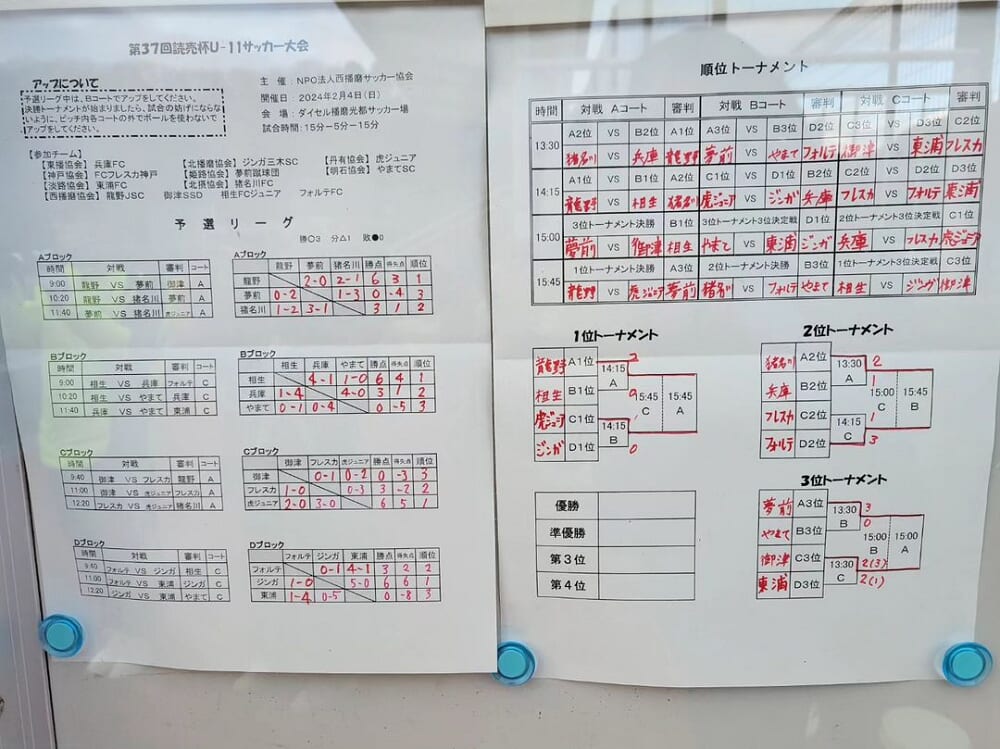 第37回読売杯U-11サッカー大会
アップについて
予選リーグ中は、Bコートでアップをしてください。
決勝トーナメントが始まりましたら、試合の妨げにならな
いように、ピッチ内各コートの外でボールを使わないで
アップをしてください。
主 催 : NPO法人西播磨サッカー協会
開催日 : 2024年2月4日(日)
会 場 : ダイセル播磨光都サッカー場
試合時間:15分ー5分ー15分
【参加チーム】
【東播協会】 兵庫FC 【北播磨協会】 ジンガ三木SC 【丹有協会】 虎ジュニア
【神戸協会】 FCフレスカ神戸 【姫路協会】 夢前蹴球団 【明石協会】 やまてSC
【淡路協会】 東浦FC 【北摂協会】 猪名川FC
【西播磨協会】 龍野JSC 御津SSD 相生FCジュニア フォルテFC
予 選 リ ー グ
勝○3 分△1 敗●0
Aブロック
時間 対戦 審判 コート
9:00 龍野 VS 夢前 御津 A
10:20 龍野 VS 猪名川 夢前 A
11:40 夢前 VS 猪名川 虎ジュニア A
Aブロック
龍野 夢前 猪名川 勝点 得失点 順位
龍野 2-0 2-1 6 3 1
夢前 0-2 1-3 0 -4 3
猪名川 1-2 3-1 3 1 2
Bブロック
時間 対戦 審判 コート
9:00 相生 VS 兵庫 フォルテ C
10:20 相生 VS やまて 兵庫 C
11:40 兵庫 VS やまて 東浦 C
Bブロック
相生 兵庫 やまて 勝点 得失点 順位
相生 4-1 1-0 6 4 1
兵庫 1-4 4-0 3 1 2
やまて 0-1 0-4 0 -5 3
Cブロック
時間 対戦 審判 コート
9:40 御津 VS フレスカ 龍野 A
11:00 御津 VS 虎ジュニア フレスカ A
12:20 フレスカ VS 虎ジュニア 猪名川 A
Cブロック
御津 フレスカ 虎ジュニア 勝点 得失点 順位
御津 0-1 0-2 0 -3 3
フレスカ 1-0 0-3 3 -2 2
虎ジュニア 2-0 3-0 6 5 1
Dブロック
時間 対戦 審判 コート
9:40 フォルテ VS ジンガ 相生 C
11:00 フォルテ VS 東浦 ジンガ C
12:20 ジンガ VS 東浦 やまて C
Dブロック
フォルテ ジンガ 東浦 勝点 得失点 順位
フォルテ 0-1 4-1 3 2 2
ジンガ 1-0 5-0 6 6 1
東浦 1-4 0-5 0 -8 3
順位トーナメント
時間 対戦 Aコート 審判 対戦 Bコート 審判 対戦 Cコート 審判
13:30 A2位 VS B2位 A1位 A3位 VS B3位 D2位 C3位 VS D3位 C2位
猪名川 兵庫 龍野 夢前 やまて フォルテ 御津 東浦 フレスカ
14:15 A1位 VS B1位 A2位 C1位 VS D1位 B2位 C2位 VS D2位 D3位
龍野 相生 猪名川 虎ジュニア ジンガ 兵庫 フレスカ フォルテ 東浦
15:00 3位トーナメント決勝 B1位 3位トーナメント3位決定戦 D1位 2位トーナメント3位決定戦 C1位
夢前 VS 御津 相生 やまて VS 東浦 ジンガ 兵庫 VS フレスカ 虎ジュニア
15:45 1位トーナメント決勝 A3位 2位トーナメント決勝 B3位 1位トーナメント3位決定戦 C3位
龍野 VS 虎ジュニア 夢前 猪名川 VS フォルテ やまて 相生 VS ジンガ 御津
1位トーナメント
龍野 A1位
相生 B1位
虎ジュニア C1位
ジンガ D1位 0
14:15 A
14:15 B
15:45 C
15:45 A
2位トーナメント
猪名川 A2位 2
兵庫 B2位 1
フレスカ C2位 1
フォルテ D2位 3
13:30 A
14:15 C
15:00 C
15:45 B
3位トーナメント
夢前 A3位 3
やまて B3位 0
御津 C3位 2(3)
東浦 D3位 2(1)
13:30 B
13:30 C
15:00 B
15:00 A
優勝
準優勝
第3位
第4位